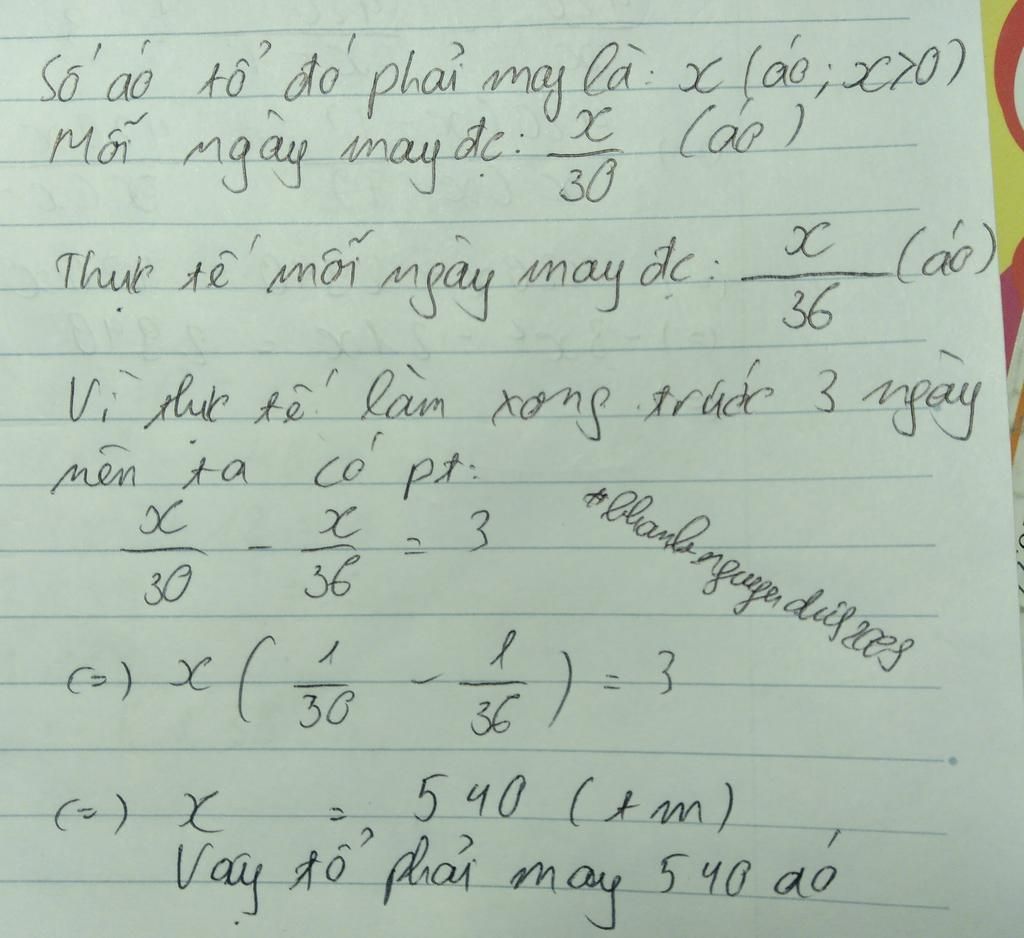 Số áo tổ đó phải may là: x (áo; x>0)
Mỗi ngày may đc: x/30 (áo)
Thực tế mỗi ngày may đc: x/36 (áo)
Vì thực tế làm xong trước 3 ngày
nên ta có pt:
x/30 - x/36 = 3
(=) x (1/30 - 1/36) = 3
(=) x = 540 (tm)
Vậy tổ phải may 540 áo